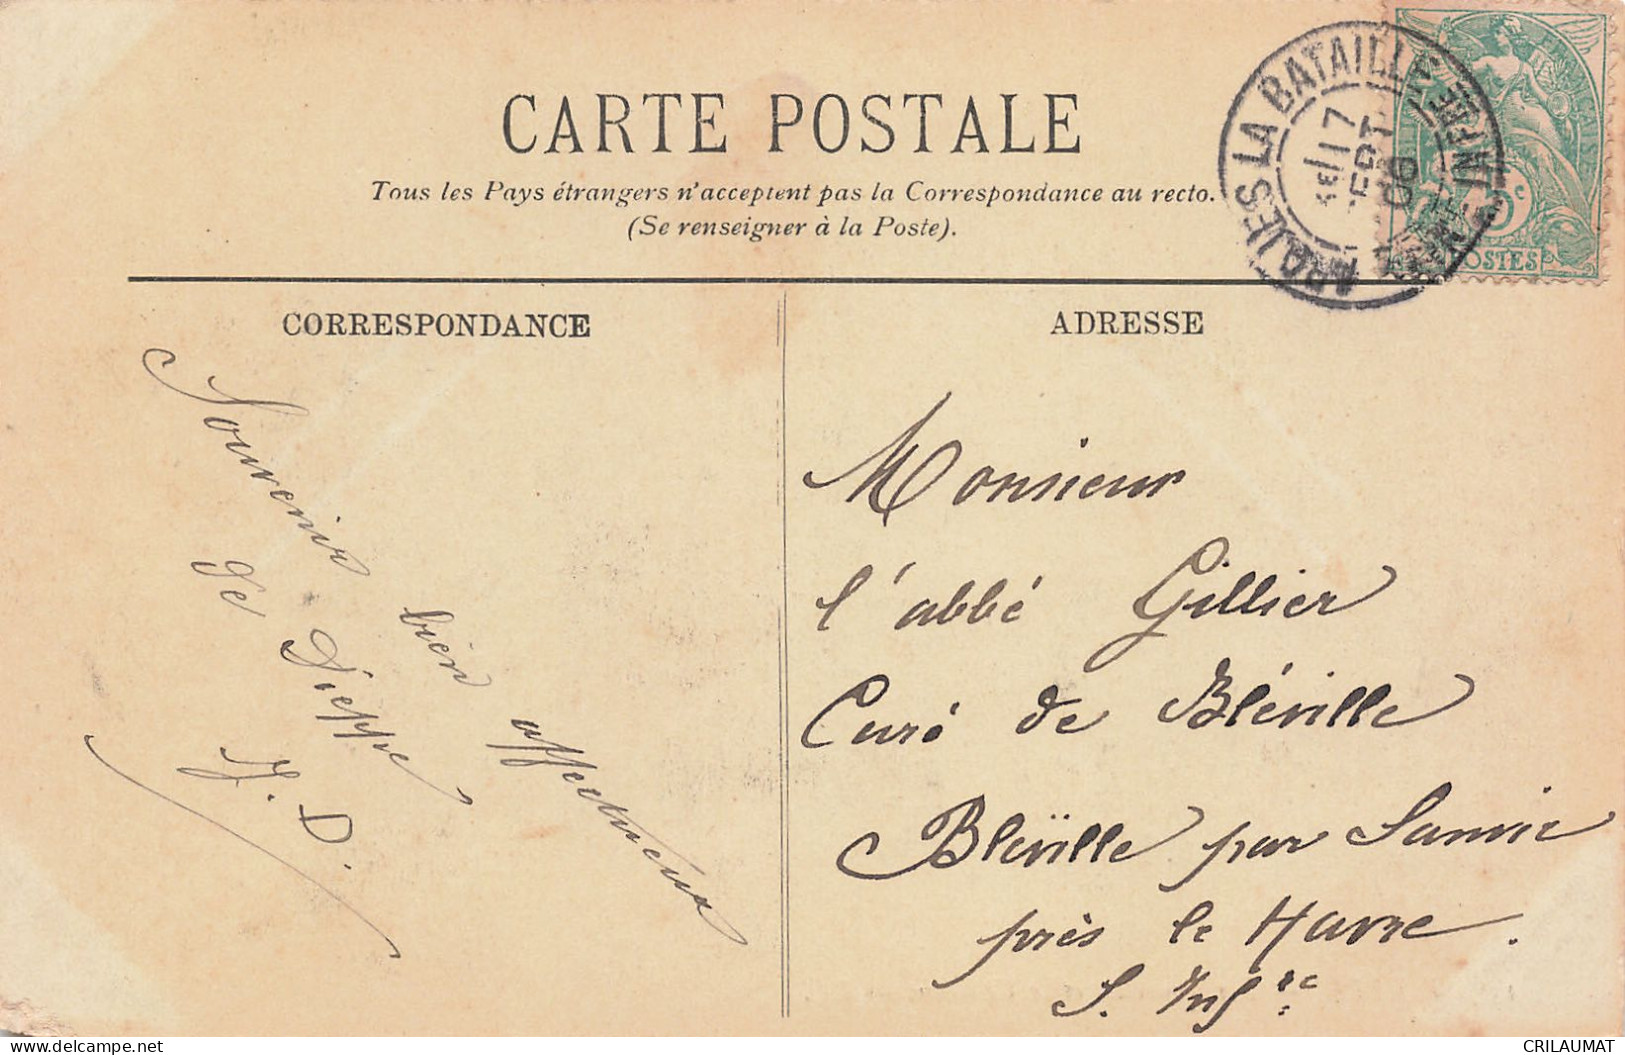 CARTE POSTALE
Tous les Pays étrangers n'acceptent pas la Correspondance au recto.
(Se renseigner à la Poste).
CORRESPONDANCE
ADRESSE
Souvenir bien affectueux
de Dieppe
J. D.
Monsieur
l'abbé Gillier
Curé de Bléville
Bléville par Sanvic
près le Havre.
S. Infre
ARQUES LA BATAILLE
17
SEPT
06
SEINE INFRE
POSTES
delcampe.net
CRILAUMAT